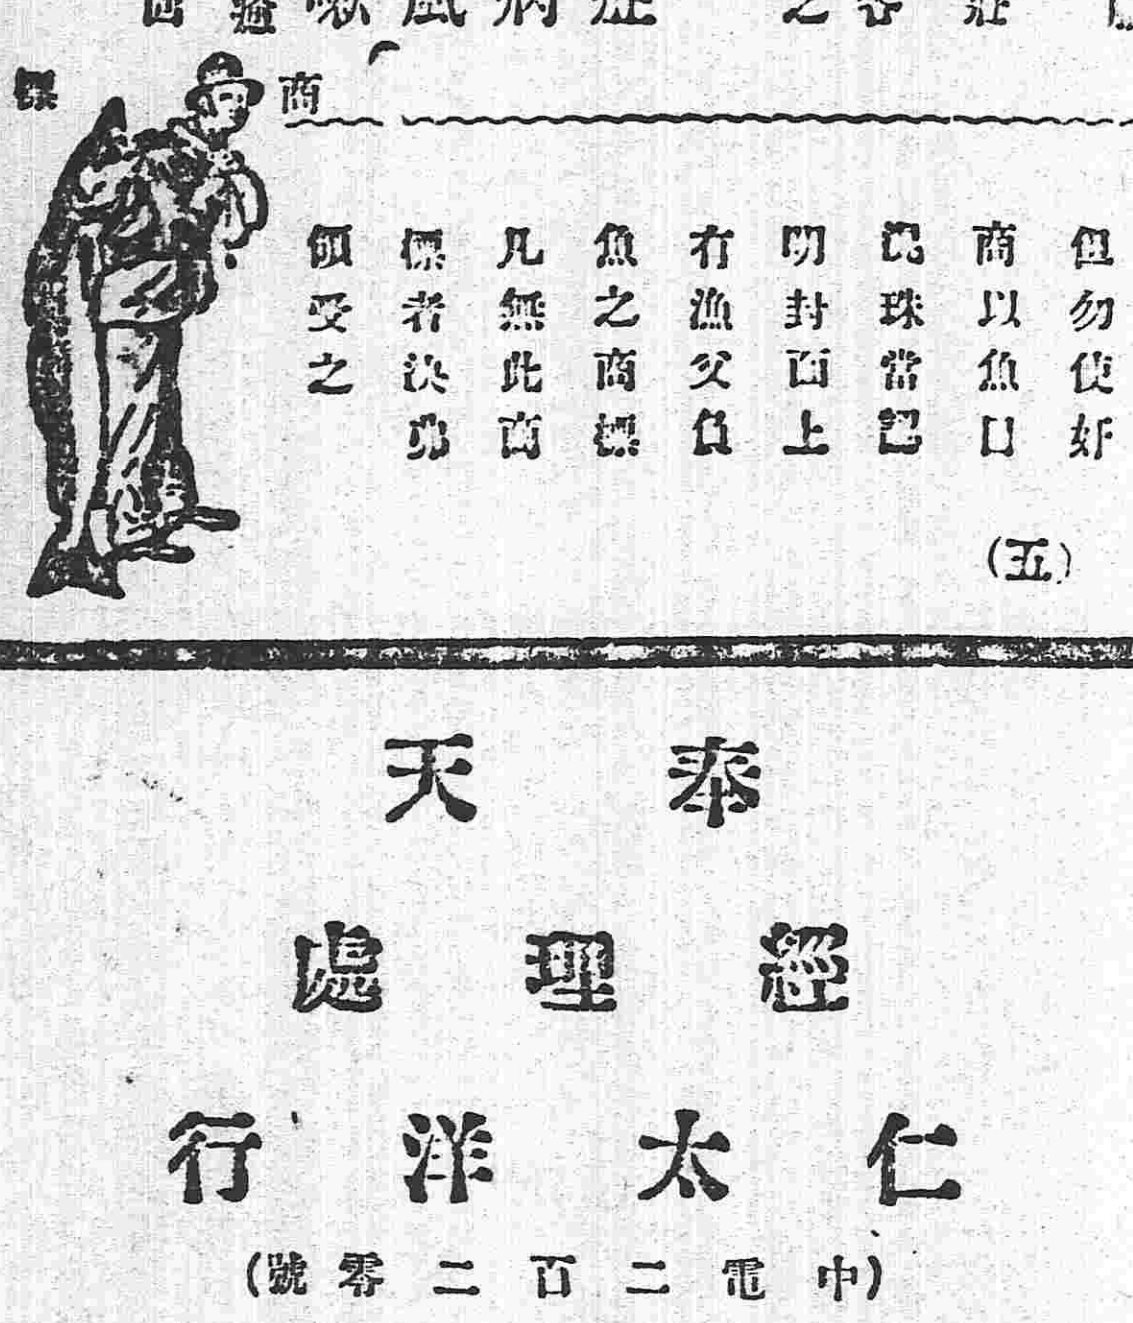 商標
但勿使奸
商以魚目
混珠當認
明封面上
有漁父負
魚之商標
凡無此商
標者決弗
領受之
(五)
奉天
經理處
仁太洋行
(中電二百二零號)